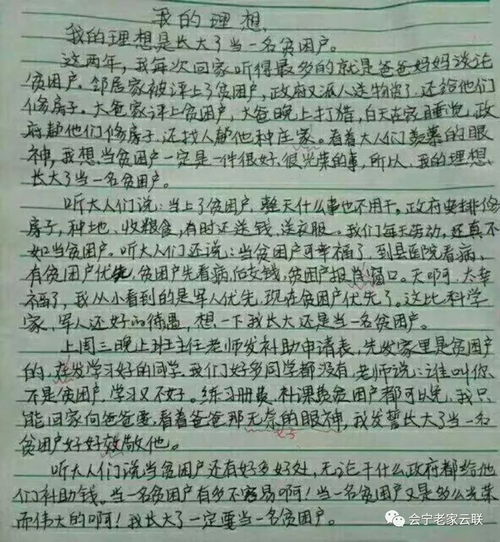 我的理想
我的理想是长大了当一名贫困户。
这两年，我每次回家听得最多的就是爸爸妈妈谈论
贫困户。邻居家被评上了贫困户，政府又派人送物资了，还给他们
修房子。大爸家评上贫困户，大爸晚上打牌，白天在家睡觉，政
府帮他们修房子，还找人帮他种庄家。看着大人们羡慕的眼
神，我想当贫困户一定是一件很好，很光荣的事，所以，我的理想，
长大了当一名贫困户。
听大人们说：当上了贫困户，整天什么事也不用干。政府安排修
房子，种地、收粮食，有时还送钱、送衣服。我们每天劳动，还真不
如当贫困户。听大人们还说：当贫困户可幸福了，到县医院看病，
有贫困户优先，贫困户先看病，后交钱，贫困户报销窗口。天啊，太幸
福了，我从小看到的是军人优先，现在贫困户优先了，这比科学
家，军人还好的待遇，想一下我长大还是当一名贫困户。
上周三晚上班主任老师发补助申请表，先发家里是贫困户
的，在发学习好的同学，我们好多同学都没有，老师说：谁叫你
不是贫困户，学习又不好。练习册费、补课费贫困户都可以免，我只
能回家向爸爸要，看着爸爸那无奈的眼神，我发誓长大了当一名
贫困户好好效敬他。
听大人们说当贫困户还有好多好处，无论干什么政府都给他
们补助钱。当一名贫困户有多不容易啊！当一名贫困户又是多么光荣
而伟大的啊！我长大了一定要当一名贫困户。
会宁老家云联